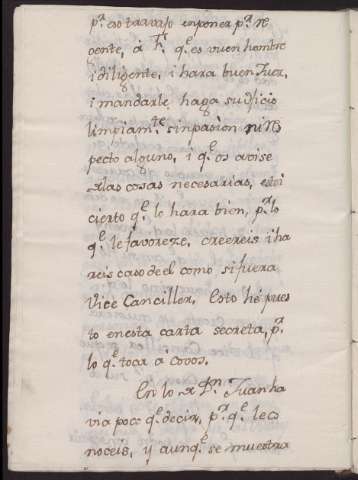 pª. eso travajo en poner pª. re
gente, à Fª. qᵉ. es vuen hombre
i diligente, i hara buen Juez,
i mandarle haga su oficio
limpiamᵗᵉ sin pasion ni rres
pecto alguno, i qᵉ. os avise
de las cosas necesarias, estoi
cierto qᵉ. le hara bien, pª. lo
qᵉ. le favoreze, creereis i ha
reis caso de el como si fuera
Vice Canciller. Esto hé pues
to en esta carta secreta, pª.
lo qᵉ. toca à Covos.
En lo de Dⁿ. Juan ha
via poco qᵉ. decir, pª. qᵉ. le co
noceis, y aunqᵉ. se muestra